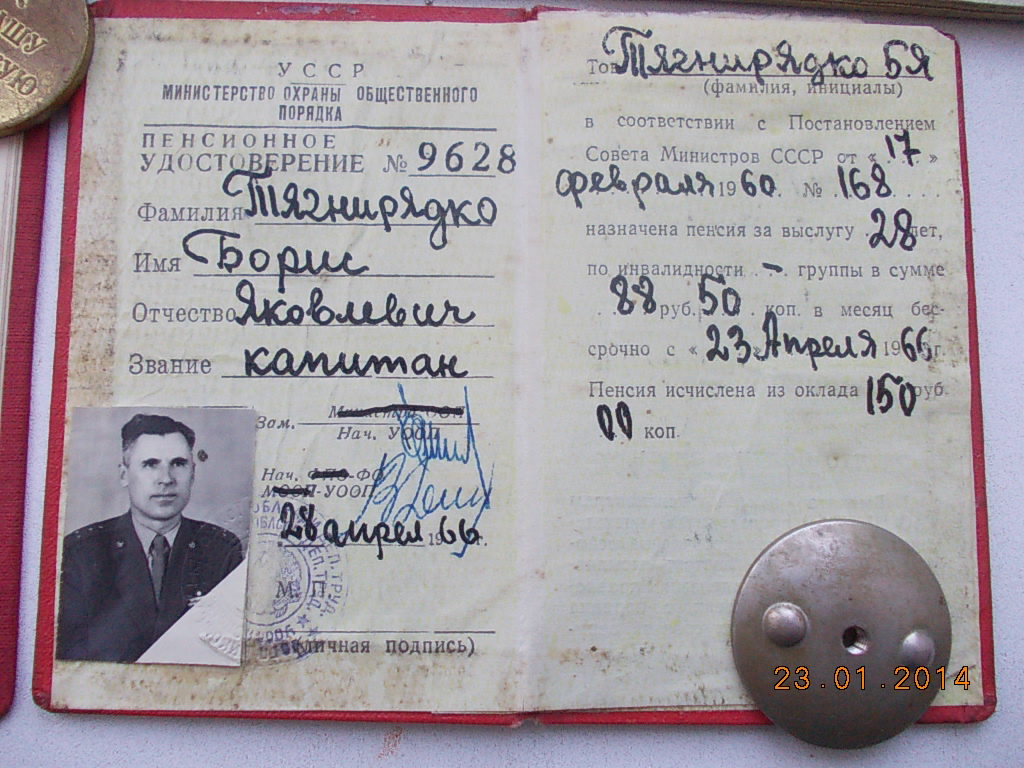 УССР
МИНИСТЕРСТВО ОХРАНЫ ОБЩЕСТВЕННОГО
ПОРЯДКА
ПЕНСИОННОЕ
УДОСТОВЕРЕНИЕ № 9628
Фамилия Тягнирядко
Имя Борис
Отчество Яковлевич
Звание капитан
Зам.
Нач. УООП
Нач. ФО
УООП
28 апрел 1966 г.
М. П.
(личная подпись)
Тов. Тягнирядко БЯ
(фамилия, инициалы)
в соответствии с Постановлением
Совета Министров СССР от «17»
февраля 1960. № 168
назначена пенсия за выслугу 28 лет,
по инвалидности - группы в сумме
88 руб. 50 коп. в месяц бес-
срочно с «23 Апреля 1966 г.
Пенсия исчислена из оклада 150 руб
00 коп.
23.01.2014